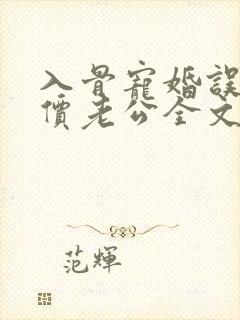 入骨寵婚誤
價老公全文
范輝